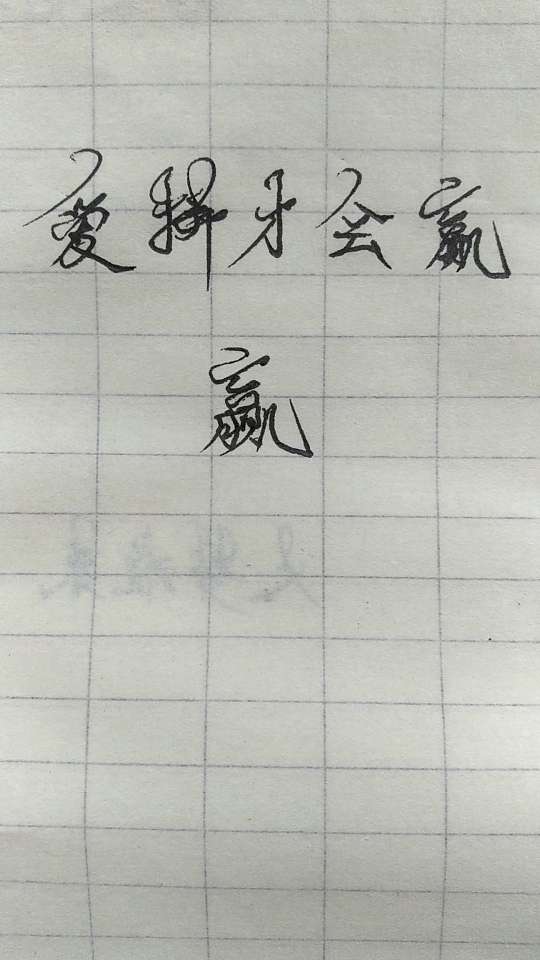 爱拼才会赢
赢